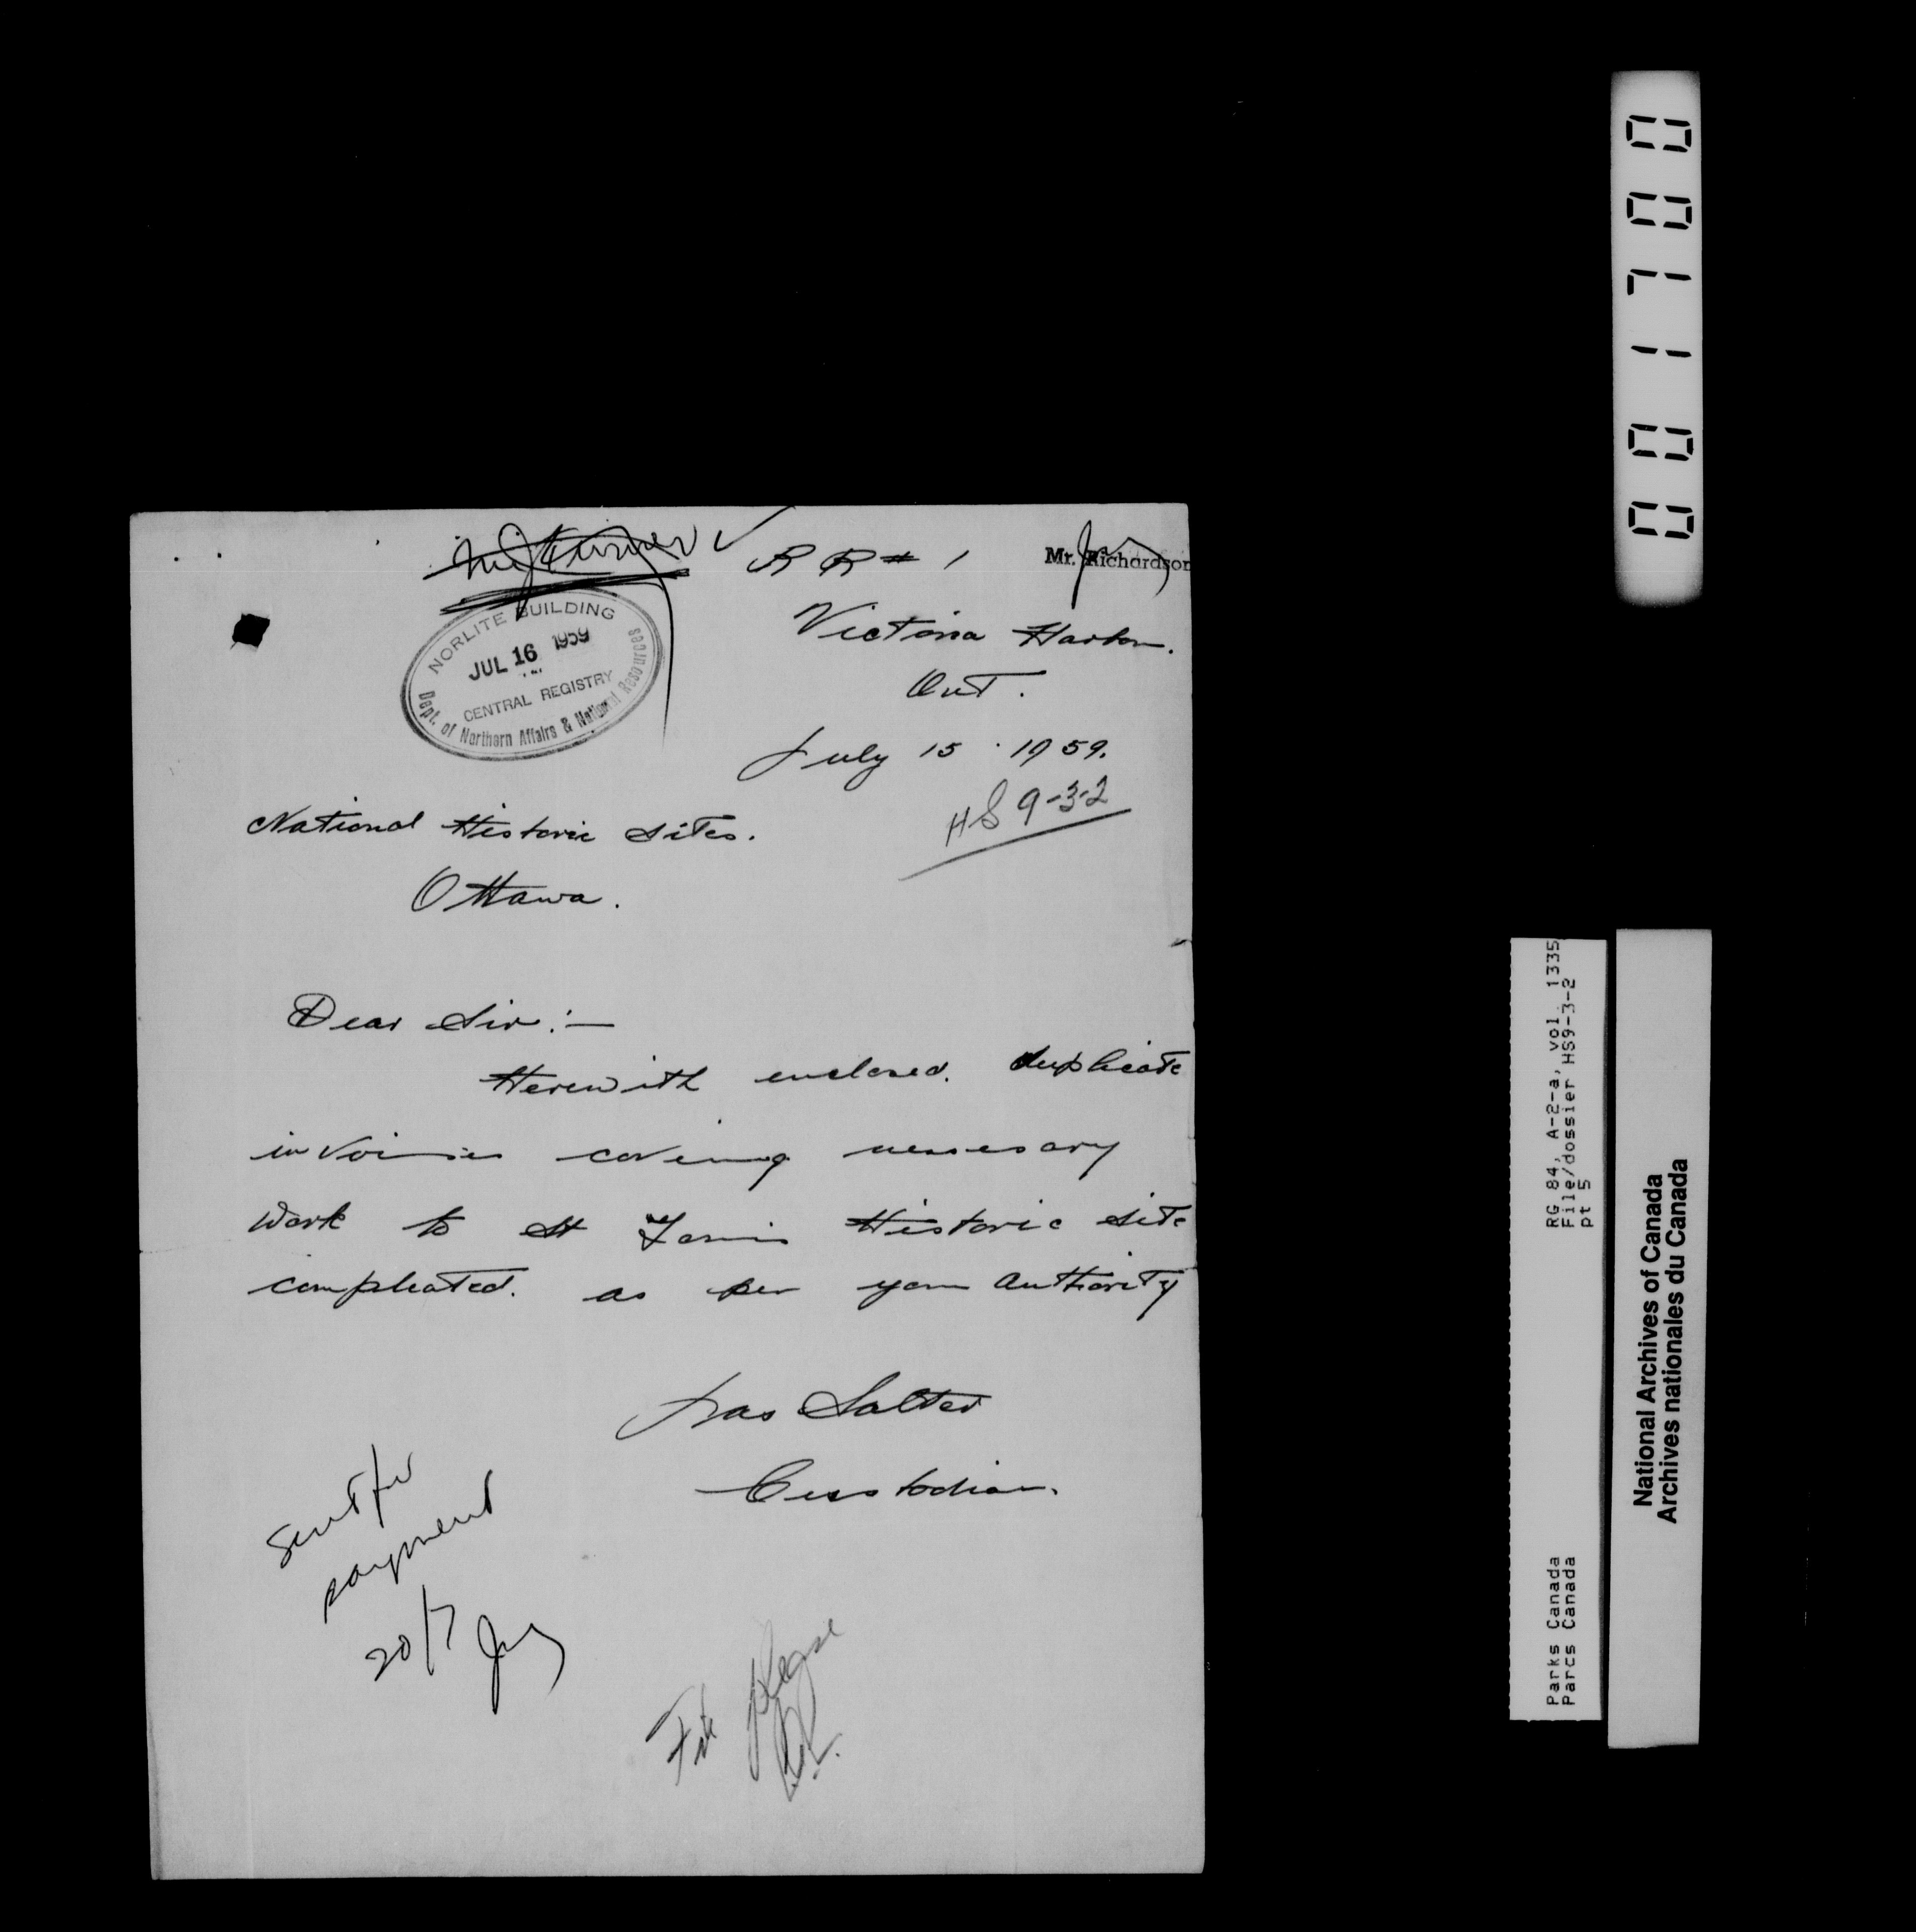 R R # 1
Mr. Richardson
Victoria Harbor.
Ont.
NORLITE BUILDING
JUL 16 1959
CENTRAL REGISTRY
Dept. of Northern Affairs & National Resources
July 15 . 1959.
HS 9-3-2
National Historic Sites.
Ottawa.
Dear Sir:—
Herewith enclosed. duplicate
invoises covering nessesary
work to St Louis Historic Site
compleated. as per your authority
Jas Salter
Custodian.
Sent for
payment
20/7
File please
001700
RG 84, A-2-a, vol. 1335
File/dossier HS9-3-2
pt 5
Parks Canada
Parcs Canada
National Archives of Canada
Archives nationales du Canada